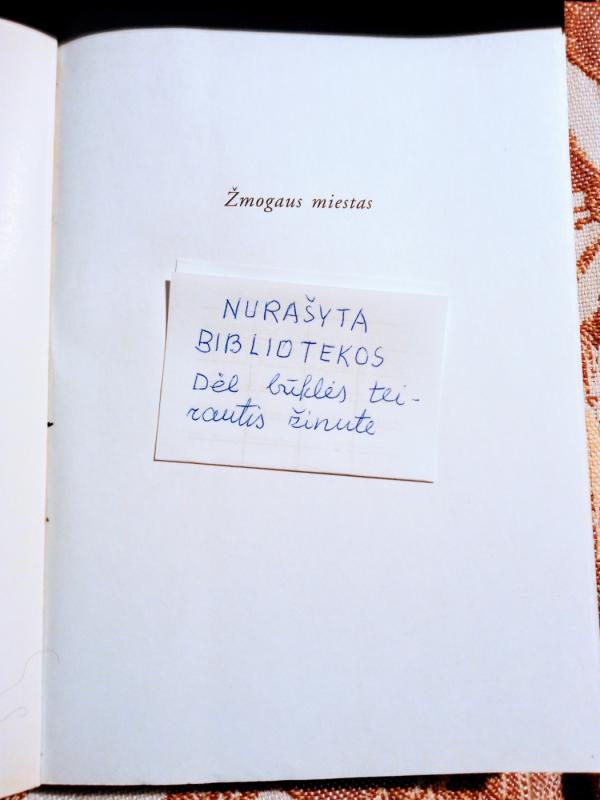 Žmogaus miestas
NURAŠYTA
BIBLIOTEKOS
Dėl būklės tei-
rautis žinute